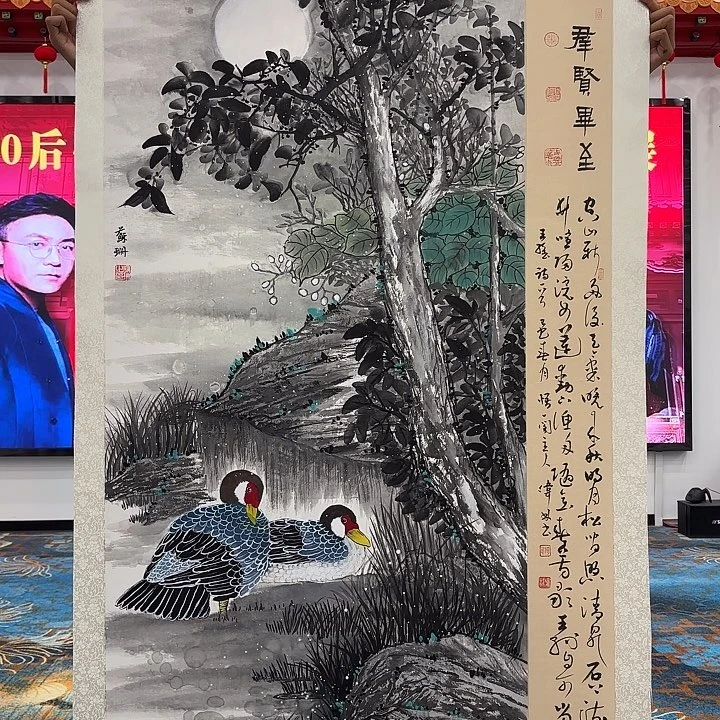 羣賢畢至
空山新雨後天氣晚來秋明月松間照清泉石上流
竹喧歸浣女蓮動下漁舟隨意春芳歇王孫自可留
王維詩一首 春月 主人 書
蘇珊
0后